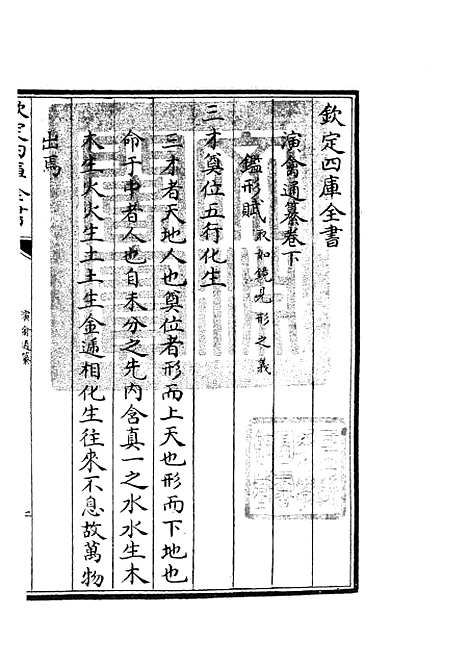 欽定四庫全書
演禽通纂卷下
鑑形賦取如鏡見形之義
三才奠位五行化生
三才者天地人也奠位者形而上天也形而下地也
命于中者人也自未分之先内含真一之水水生木
木生火火生土土生金遞相化生往來不息故萬物
出焉
欽定四庫全書
演禽通纂